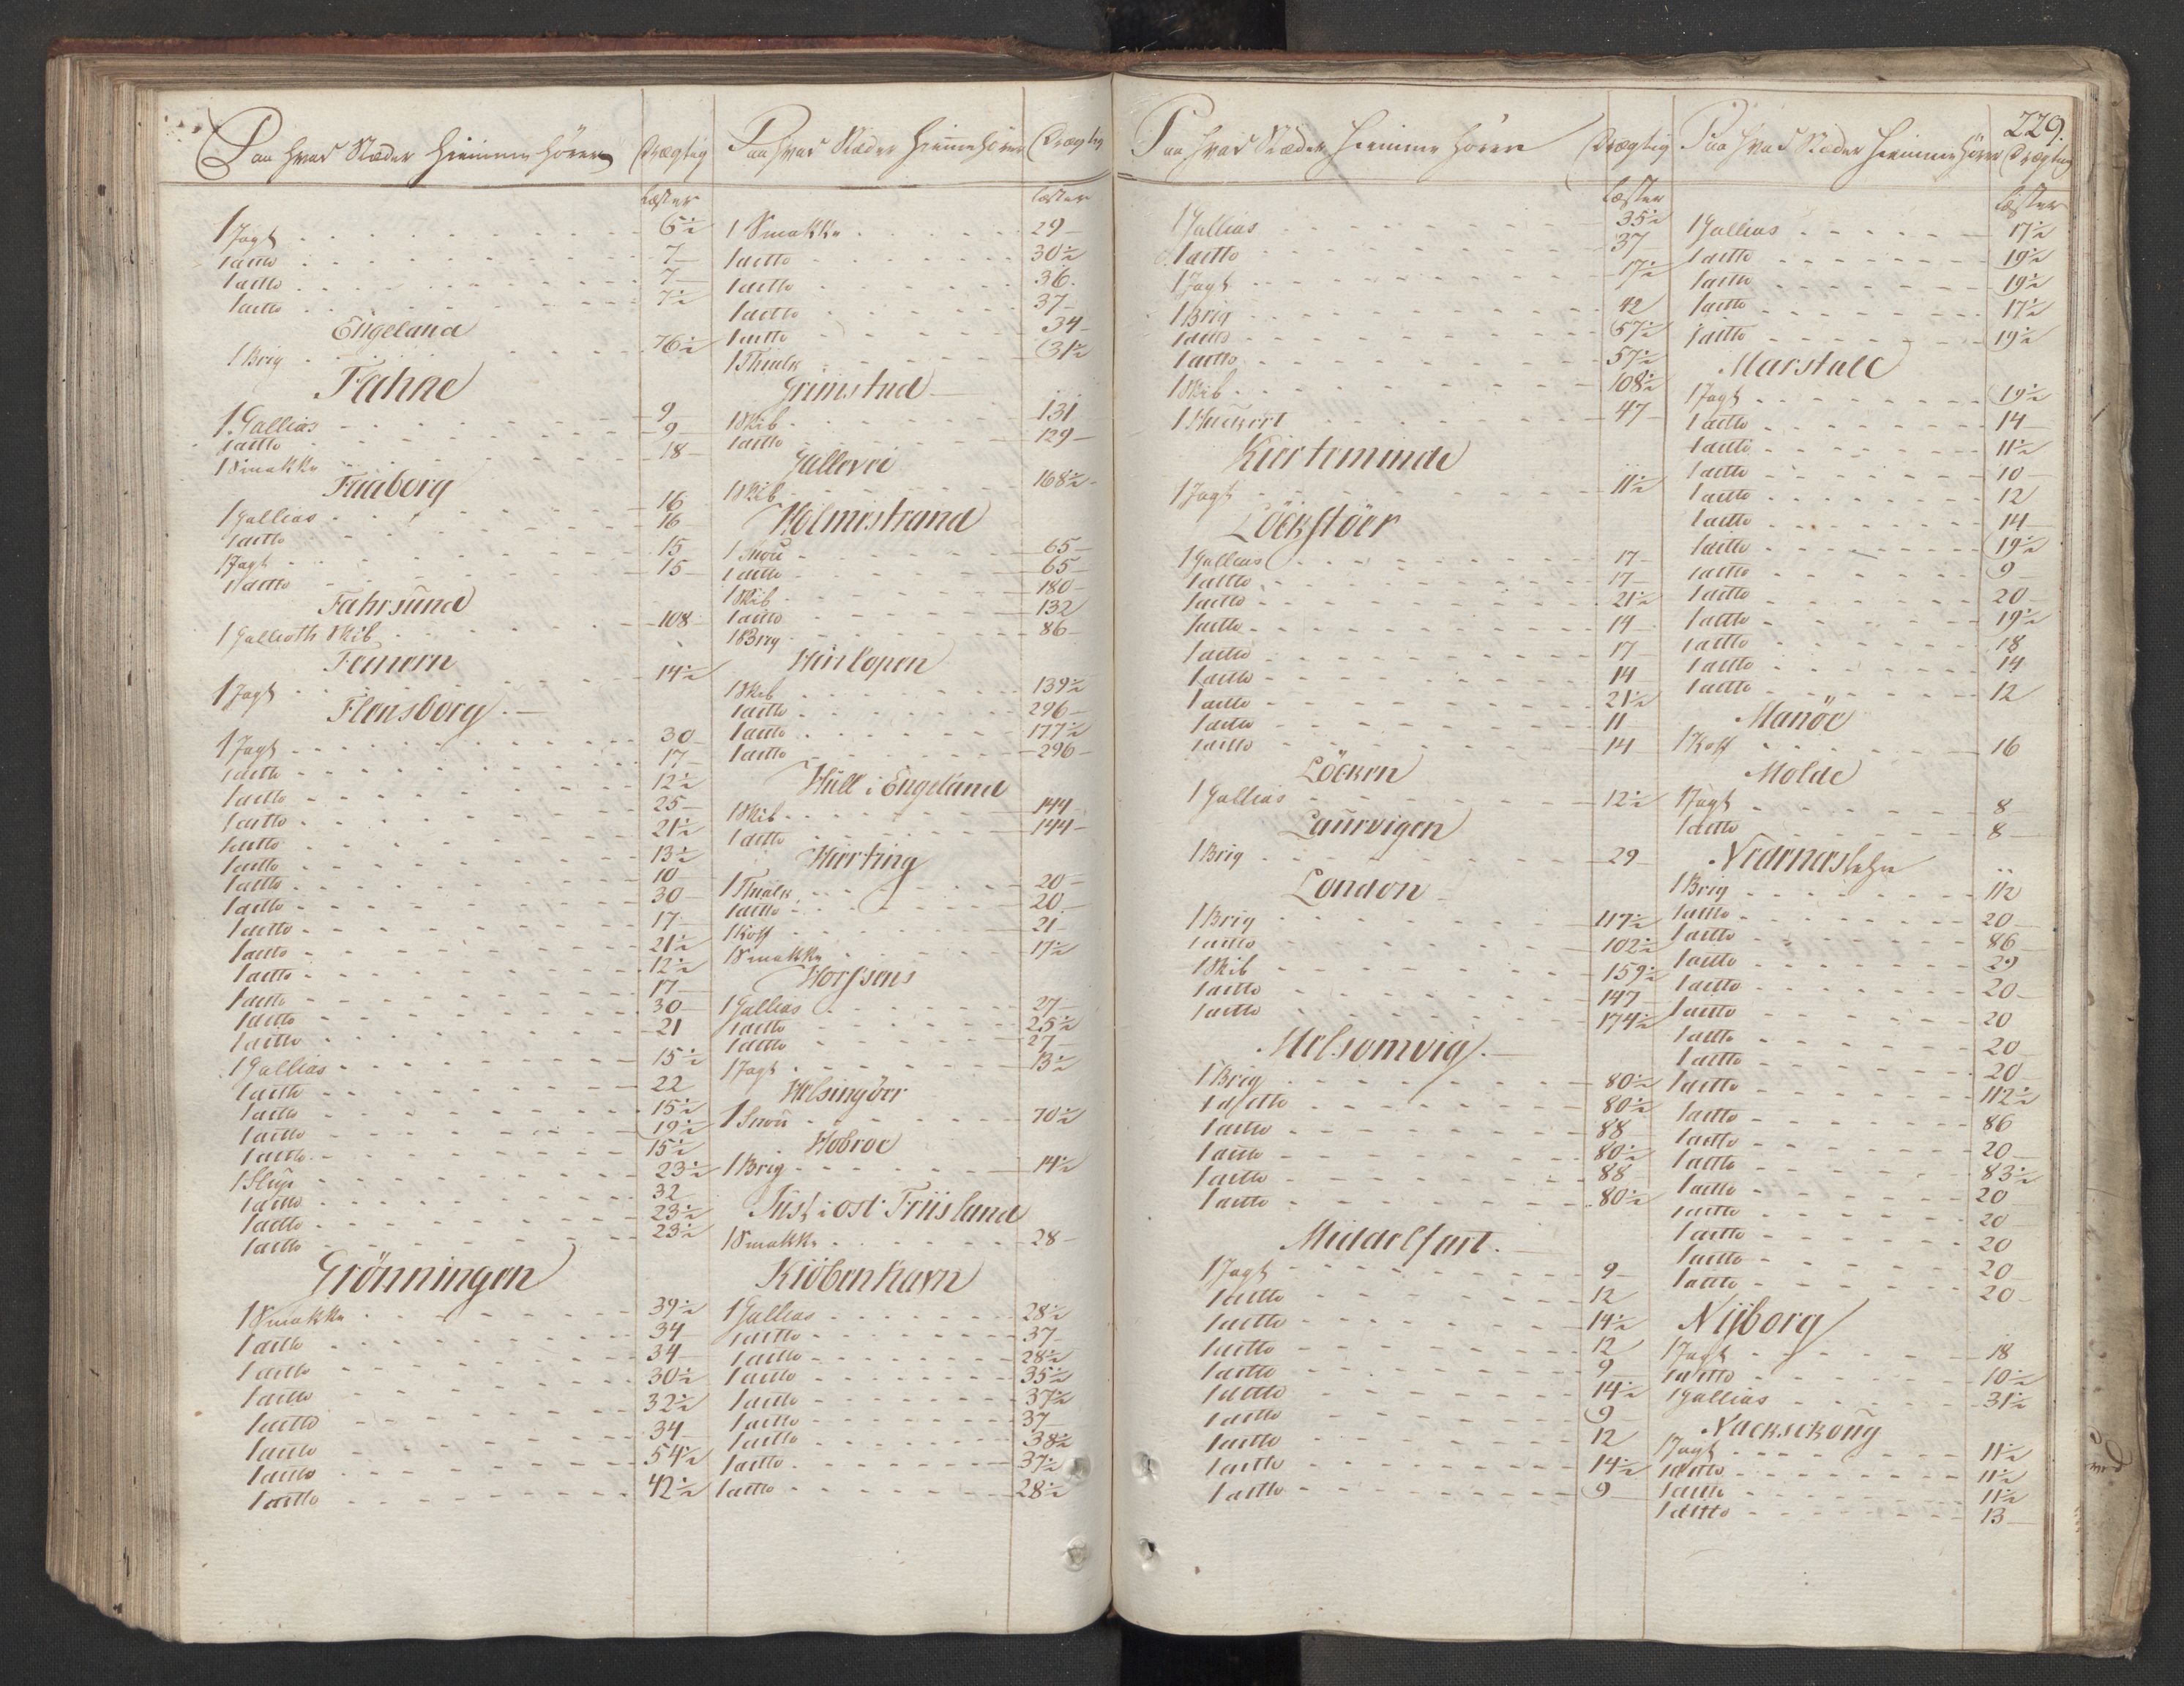 Paa hvad Stæder Hiemme hører Drægtig
Læster
1 Jagt 6½
1 ditto 7
1 ditto 7
1 ditto 7½
Engeland
1 Brig 76½
Fahne
1 Gallias 9
1 ditto 9
1 Smakke 18
Faaborg
1 Gallias 16
1 ditto 16
1 Jagt 15
1 ditto 15
Fahrsund
1 Gallioth Skib 108
Femern
1 Jagt 14½
Flensborg
1 Jagt 30
1 ditto 17
1 ditto 12½
1 ditto 25
1 ditto 21½
1 ditto 13½
1 ditto 10
1 ditto 30
1 ditto 17
1 ditto 21½
1 ditto 12½
1 ditto 17
1 ditto 30
1 ditto 21
1 Gallias 15½
1 ditto 22
1 ditto 15½
1 ditto 19½
1 ditto 15½
1 Slup 23½
1 ditto 32
1 ditto 23½
1 ditto 23½
Grönningen
1 Smakke 39½
1 ditto 34
1 ditto 34
1 ditto 30½
1 ditto 32½
1 ditto 34
1 ditto 54½
1 ditto 42½
Paa hvad Stæder Hiemme hører Drægtig
Læster
1 Smakke 29
1 ditto 30½
1 ditto 36
1 ditto 37
1 ditto 34
1 Thialk 31½
Grimstad
1 Skib 131
1 ditto 129
Gallevei
1 Skib 168½
Holmestrand
1 Snou 65
1 ditto 65
1 Skib 180
1 ditto 132
1 Brig 86
Hinlopen
1 Skib 139½
1 ditto 296
1 ditto 177½
1 ditto 296
Hull i Engeland
1 Skib 144
1 ditto 144
Hierting
1 Thialk 20
1 ditto 20
1 Koff 21
1 Smakke 17½
Horssens
1 Gallias 27
1 ditto 25½
1 ditto 27
1 Jagt 13½
Helsingöer
1 Snou 70½
Hobroe
1 Brig 14½
Just i ost Friisland
1 Smakke 28
Kiöbenhavn
1 Gallias 28½
1 ditto 37
1 ditto 28½
1 ditto 35½
1 ditto 37½
1 ditto 37
1 ditto 38½
1 ditto 37½
1 ditto 28½
Paa hvad Stæder Hiemme hører Drægtig
Læster
1 Gallias 35½
1 ditto 37
1 Jagt 17½
1 Brig 42
1 ditto 57½
1 ditto 57½
1 Skib 108½
1 Huckert 47
Kierteminde
1 Jagt 11½
Löckstöer
1 Gallias 17
1 ditto 17
1 ditto 21½
1 ditto 19
1 ditto 17
1 ditto 14
1 ditto 21½
1 ditto 11
1 ditto 14
Löcken
1 Gallias 12½
Laurvigen
1 Brig 29
London
1 Brig 117½
1 ditto 102½
1 Skib 159½
1 ditto 147
1 ditto 174½
Melsomvig
1 Brig 80½
1 ditto 80½
1 ditto 88
1 ditto 80½
1 ditto 88
1 ditto 80½
Middelfart
1 Jagt 9
1 ditto 12
1 ditto 14½
1 ditto 12
1 ditto 9
1 ditto 14½
1 ditto 9
1 ditto 12
1 ditto 14½
1 ditto 9
229.
Paa hvad Stæder Hiemme hører Drægtig
Læster
1 Gallias 17½
1 ditto 19½
1 ditto 19½
1 ditto 17½
1 ditto 19½
Marstall
1 Jagt 19½
1 ditto 14
1 ditto 11½
1 ditto 10
1 ditto 12
1 ditto 14
1 ditto 19½
1 ditto 9
1 ditto 20
1 ditto 19½
1 ditto 18
1 ditto 14
1 ditto 12
Manöe
1 Koff 16
Molde
1 Jagt 8
1 ditto 8
1 Brig 112
1 ditto 20
1 ditto 86
1 ditto 29
1 ditto 20
1 ditto 20
1 ditto 20
1 ditto 20
1 ditto 112½
1 ditto 86
1 ditto 20
1 ditto 83½
1 ditto 20
1 ditto 20
1 ditto 20
1 ditto 20
1 ditto 20
Nyborg
1 Jagt 18
1 ditto 10½
1 Gallias 31½
Nackschoug
1 Jagt 11½
1 ditto 11½
1 ditto 11½
1 ditto 13